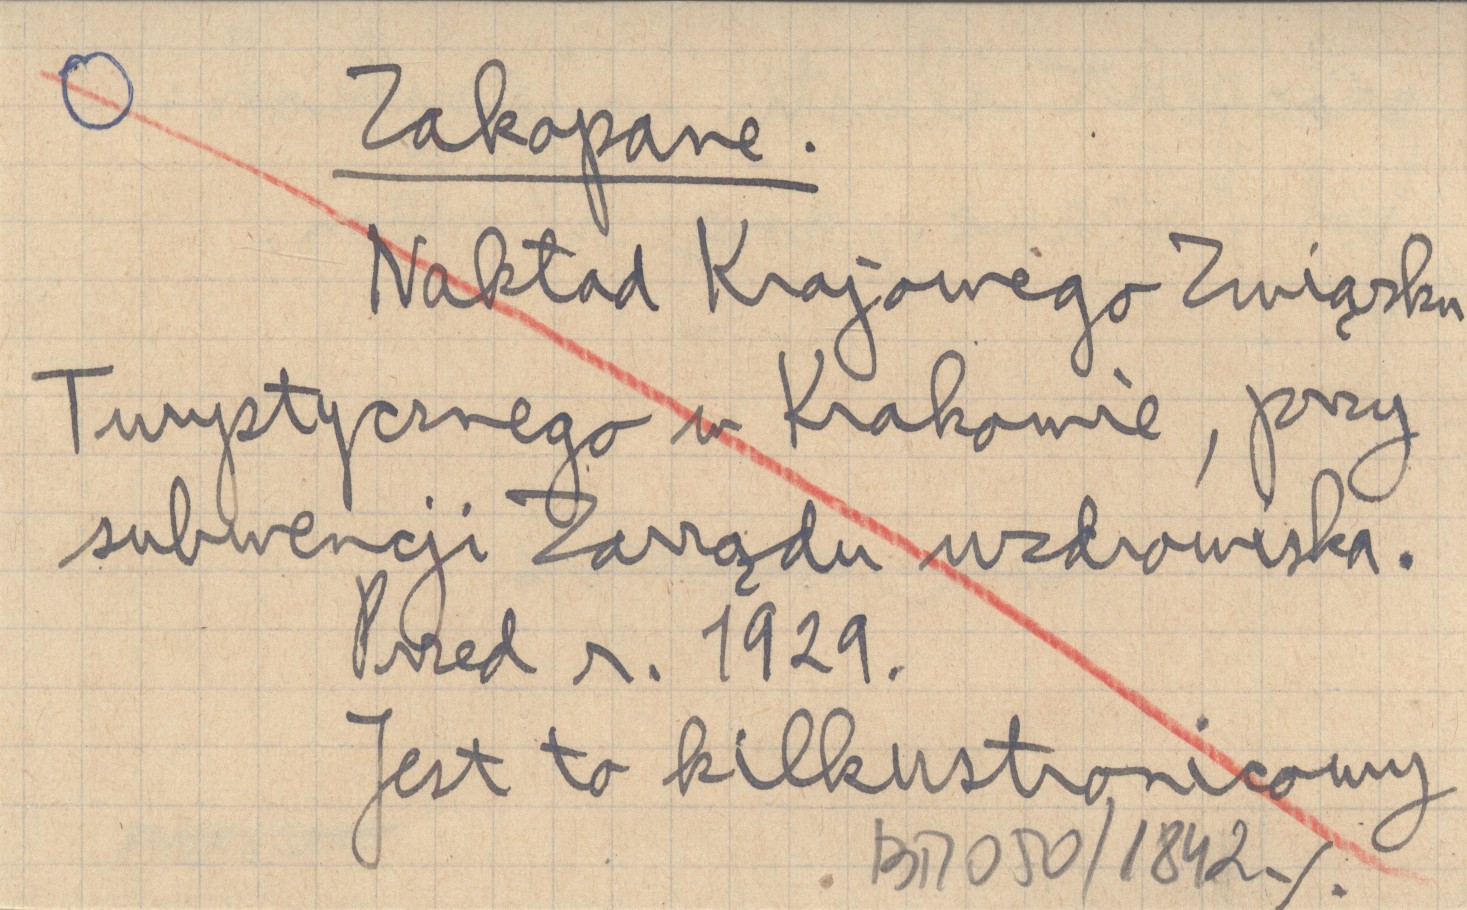 Zakopane.
Nakład Krajowego Związku
Turystycznego w Krakowie, przy
subwencji Zarządu uzdrowiska.
Przed r. 1929.
Jest to kilkustronicowy
050/1842